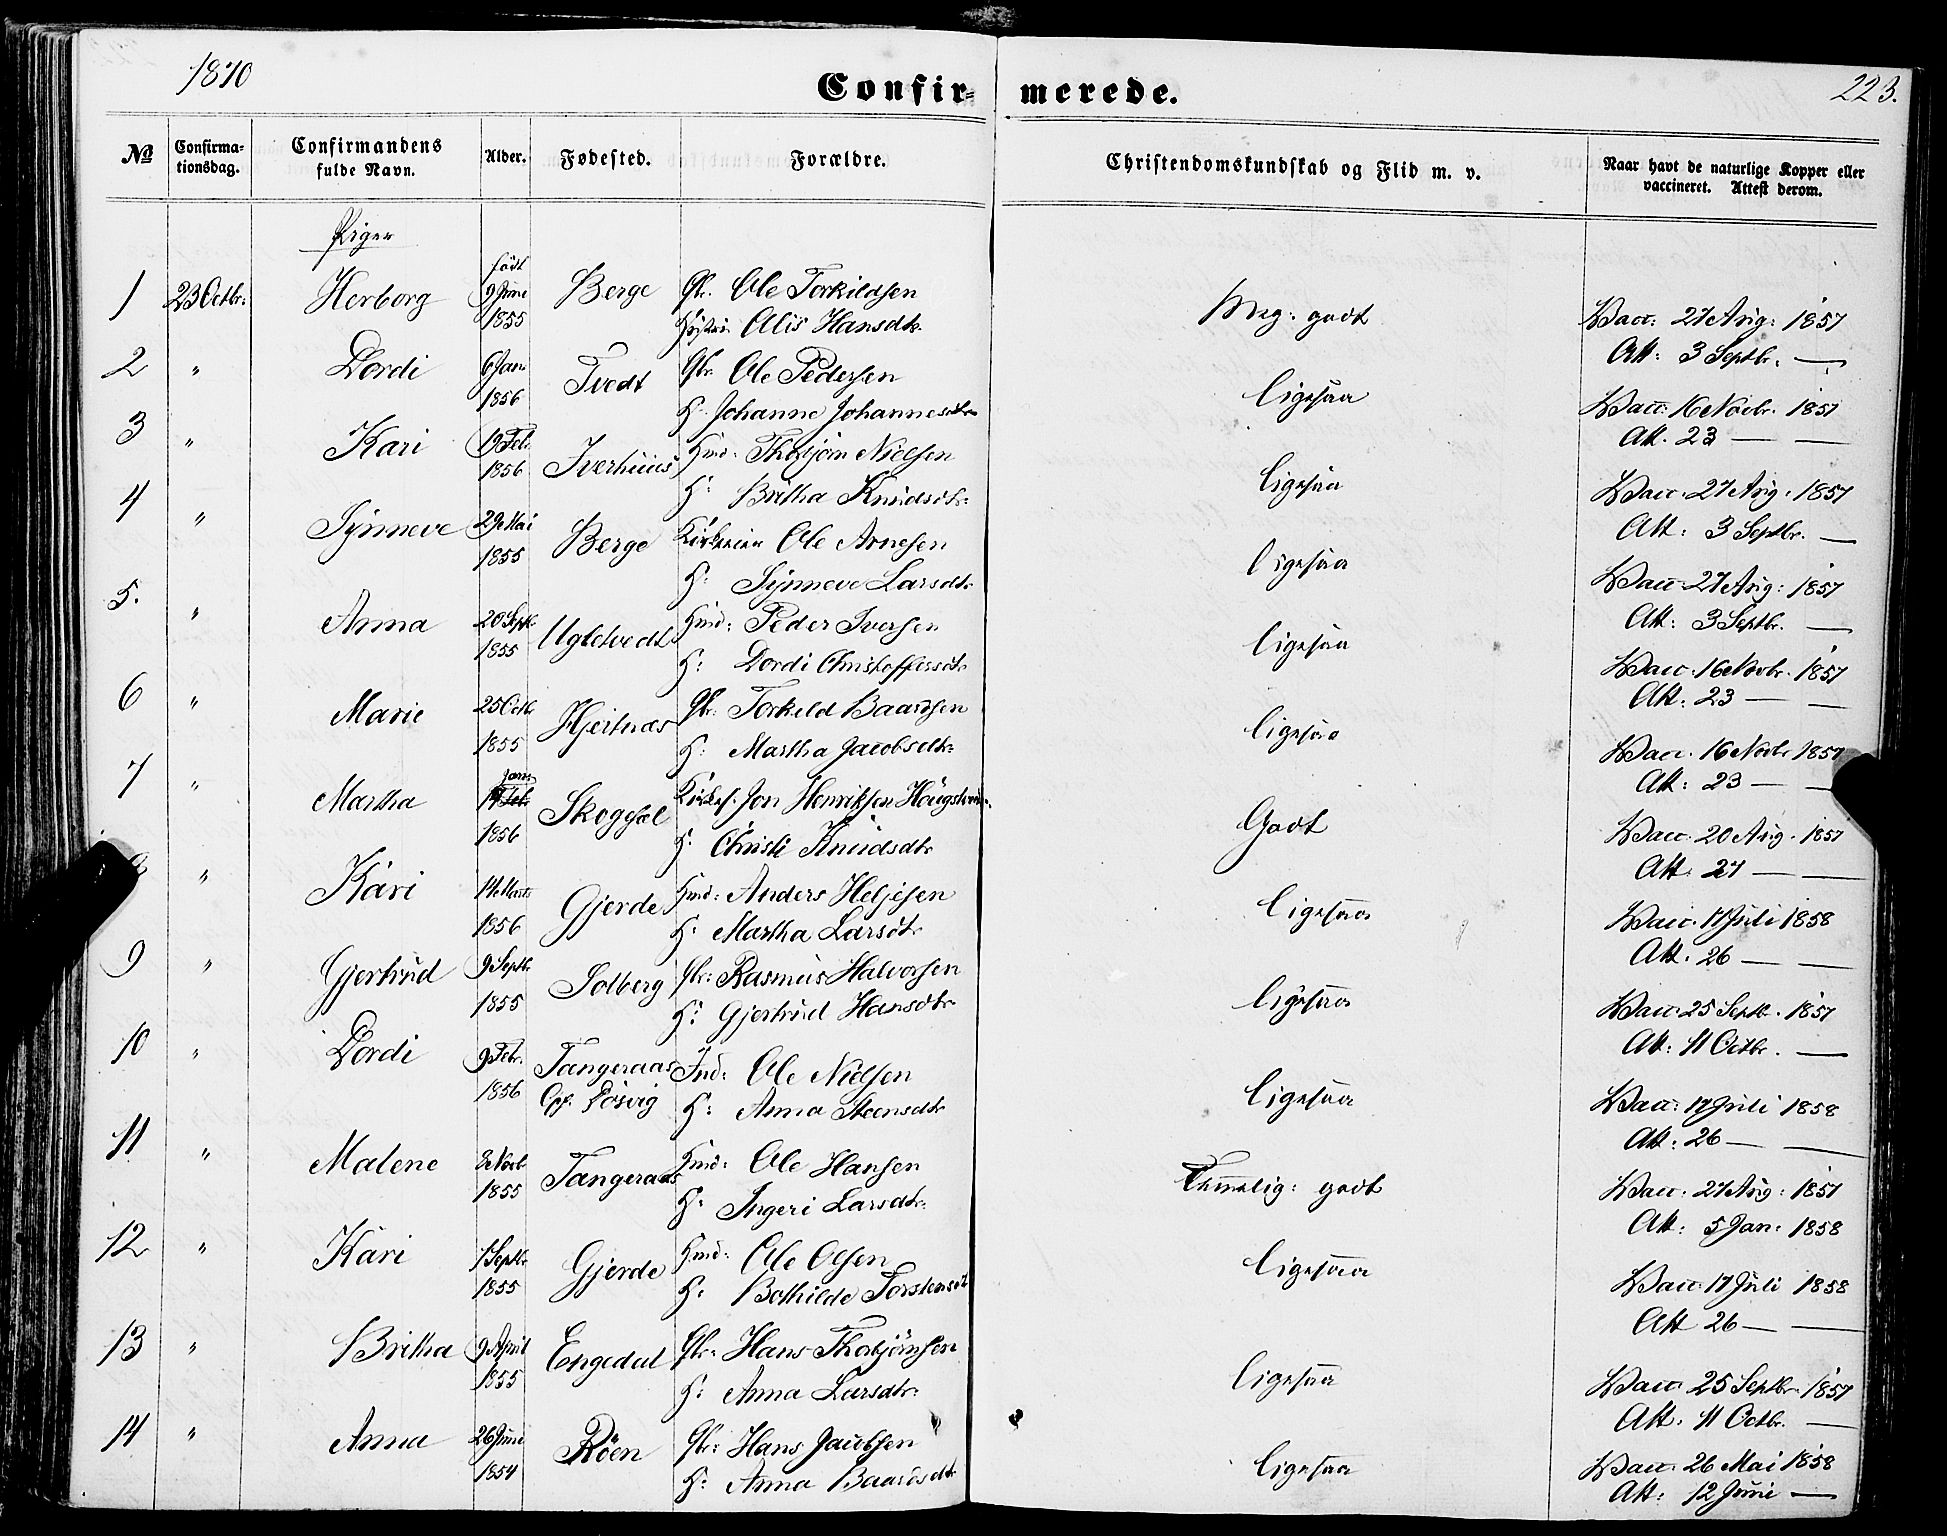 1870
Confir= merede.
223.
№
Confirma-
tionsdag.
Confirmandens
fulde Navn.
Alder.
Fødested.
Forældre.
Christendomskundskab og Flid m. v.
Naar havt de naturlige Kopper eller
vaccineret. Attest derom.
Piger
1 23 Octbr: Herborg født 9 Juni 1855 Berge Gbr. Ole Torkildsen
Hustru Alis Hansdtr.
Meg: godt
Vacc: 27 Aug: 1857
Att: 3 Septbr. —
2 " Dordi 6 Jan 1856 Tvedt Gbr. Ole Pedersen
H. Johanne Johannesdtr
Ligesaa
Vacc: 16 Novbr. 1857
Att. 23 — —
3 " Kari 19 Feb. 1856 Iverhuus Huusd: Thorbjørn Nielsen
H: Britha Knudsdtr.
Ligesaa
Vacc. 27 Aug. 1857
Att: 3 Septbr. —
4 " Synneve 29 Mai 1855 Berge Ole Arnesen
H: Synneve Larsdtr
Ligesaa
Vacc. 27 Aug: 1857
Att: 3 Septbr. —
5. " Anna 20 Septb 1855 Ugletvedt Huusd: Peder Iversen
H: Dordi Christoffersdtr
Ligesaa
Vacc. 16 Novbr. 1857
Att: 23 — —
6 " Marie 25 Octb 1855 Hjertnæs Gbr: Torkeld Baardsen
H: Martha Jacobsdtr
Ligesaa
Vacc. 16 Novbr 1857
Att: 23 — —
7 " Martha Jan 1856 Skoggjæl Jon Henriksen
H: Christi Knudsdtr
Godt
Vacc. 20 Aug. 1857
Att: 27 — —
8 " Kari 14 Marts 1856 Gjerde Huusd: Anders Heljesen
H: Martha Larsdt.
Ligesaa
Vacc. 17 Juli 1858
Att. 26 — —
9 " Gjertrud 9 Septbr. 1855 Solberg Gbr: Rasmus Halvorsen
H: Gjertrud Hansdtr
Ligesaa
Vacc. 25 Septbr. 1857
Att: 11 Octbr. —
10 " Dordi 9 Febr. 1856 Tangeraas Ind: Ole Nielsen
H: Anna Steensdtr
Ligesaa
Vacc: 17 Juli 1858
Att: 26 — —
11 " Malene 8 Novb 1855 Tangeraas Huusd: Ole Hansen
H: Ingeri Larsdtr.
Temmelig: godt
Vacc: 27 Aug: 1857
Att: 5 Jan: 1858
12 " Kari 1 Septbr 1855 Gjerde Huusd: Ole Olsen
H. Bothilde Torstensdt
Ligesaa
Vacc. 17 Juli 1858
Att 26 — —
13 " Britha 9 April 1855 Engedal Gbr: Hans Thorbjørnsen
H: Anna Larsdtr.
Ligesaa
Vacc. 25 Septbr. 1857
Att: 11 Octbr. —
14 " Anna 26 Juni 1854 Röen Gbr: Hans Jacobsen
H: Anna Baardsdtr
Ligesaa
Vacc: 26 Mai 1858
Att: 12 Juni —